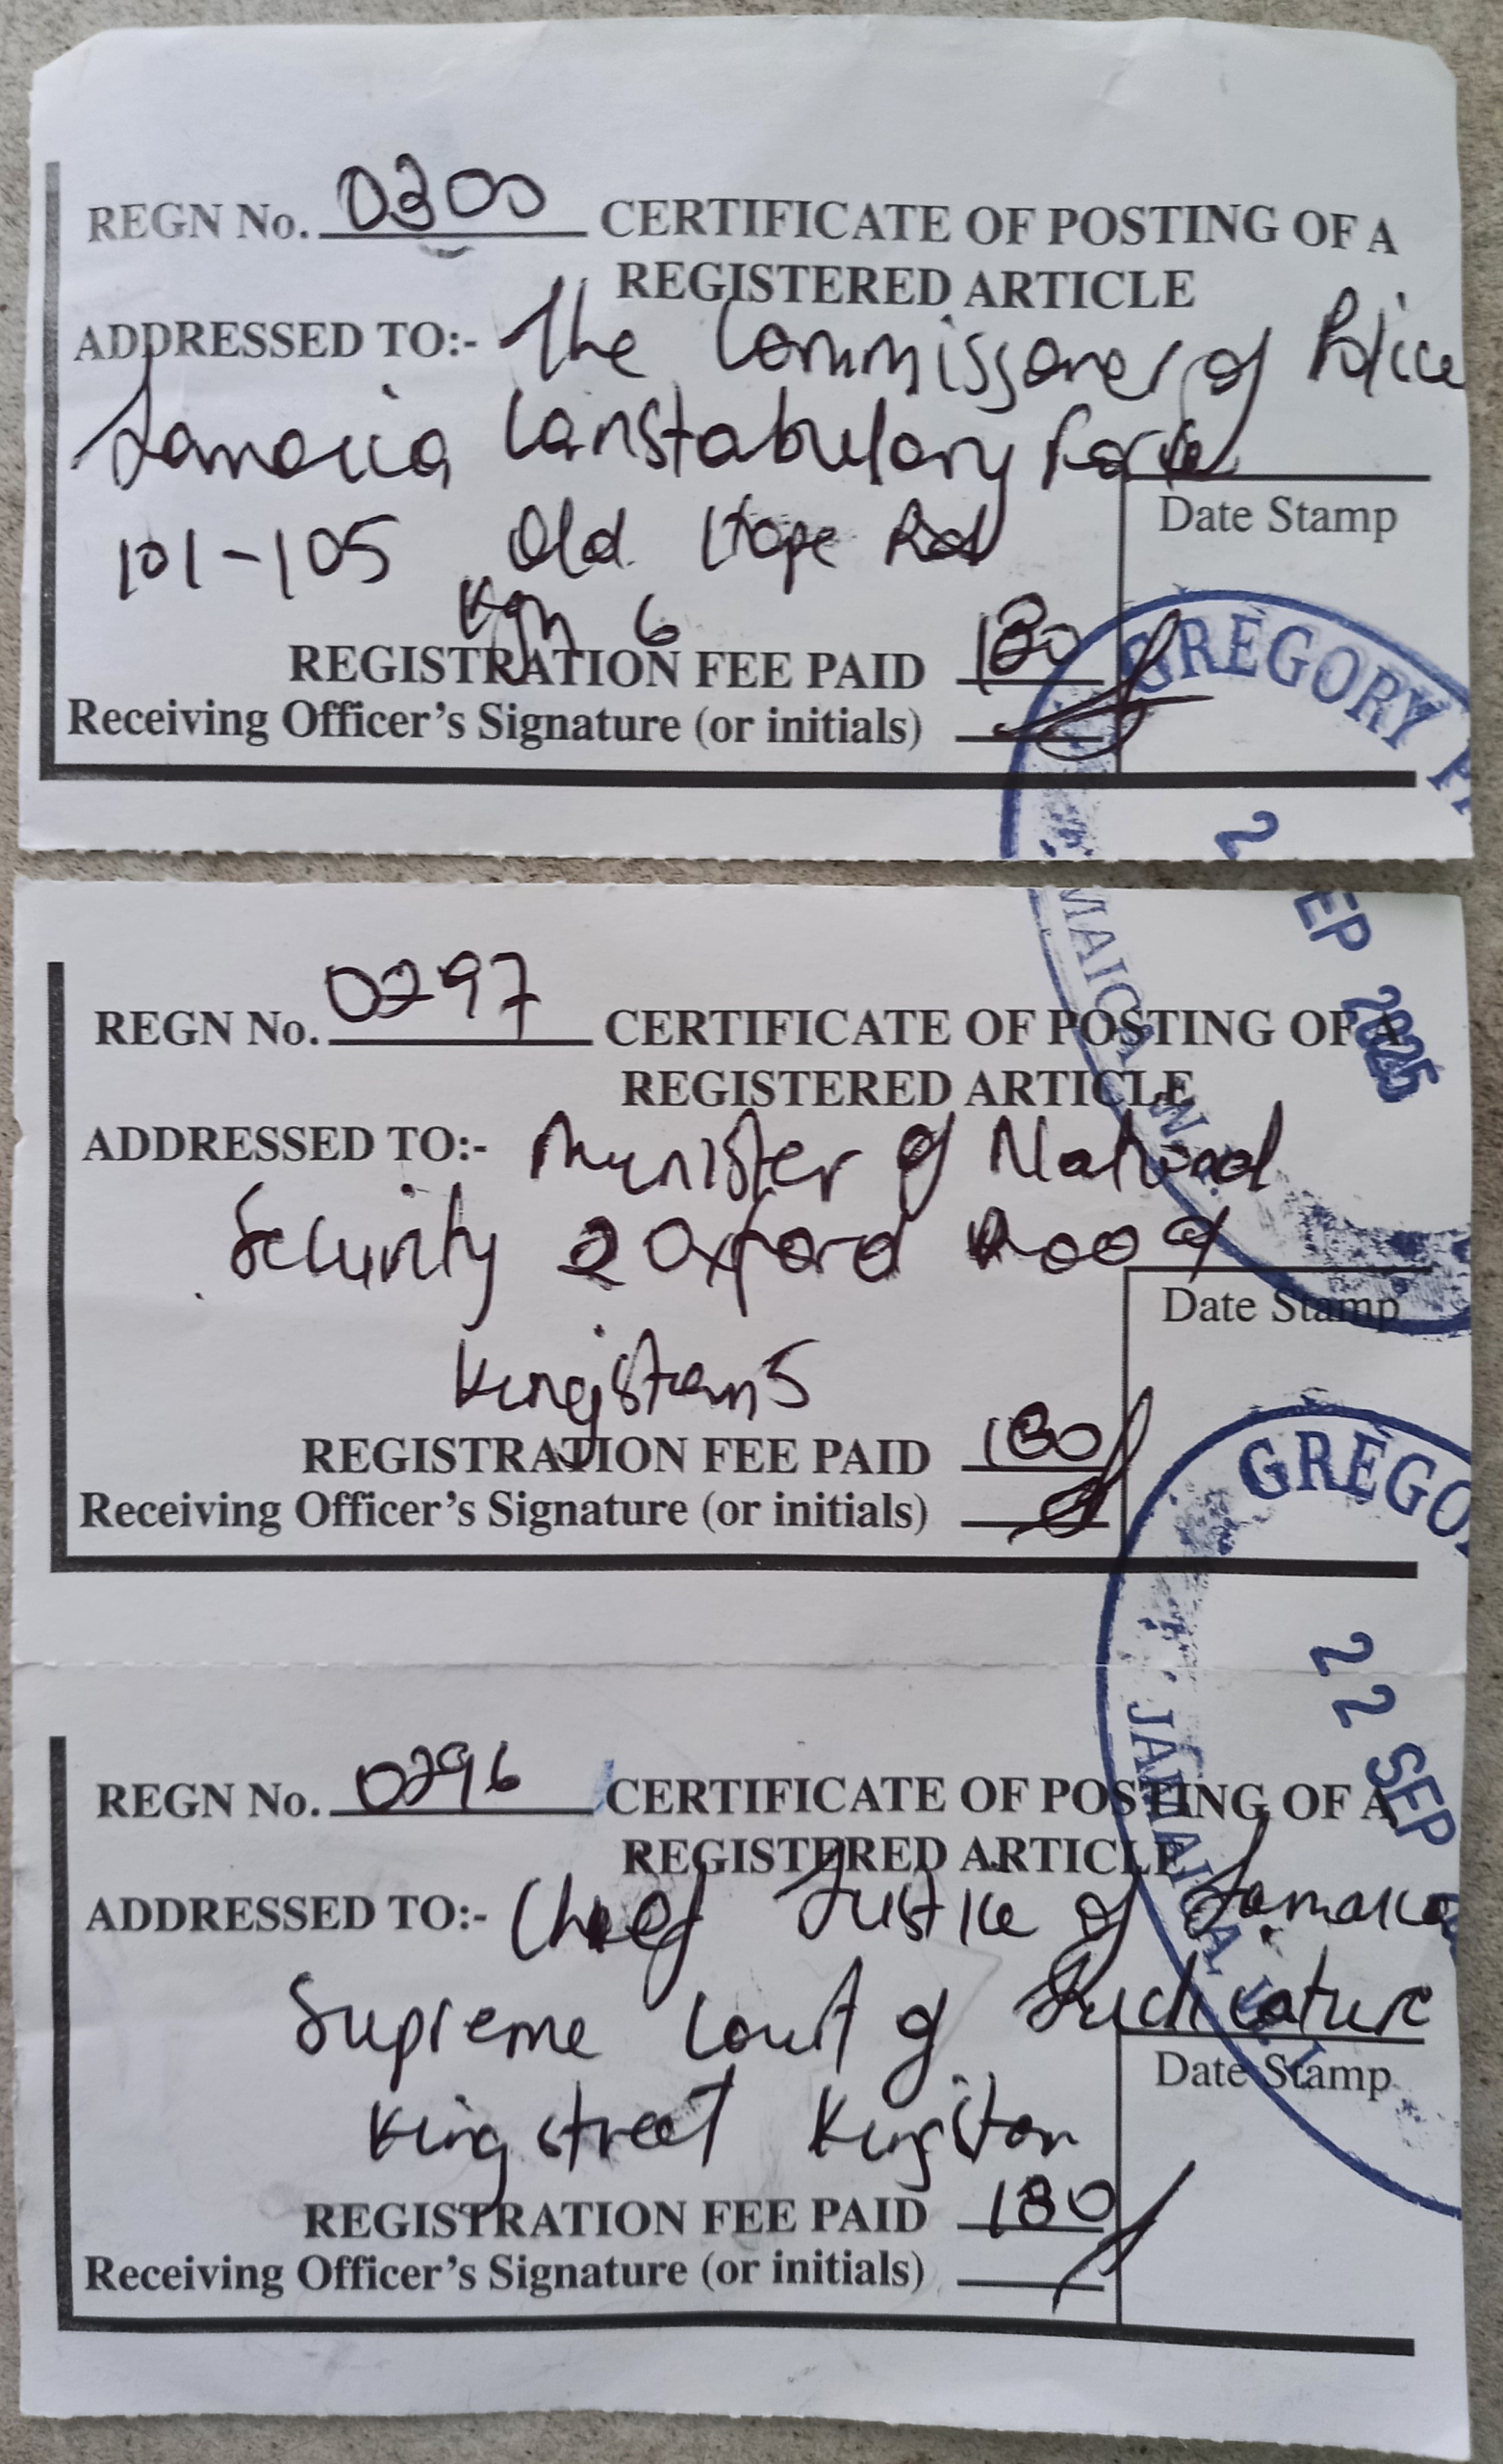 REGN No. 0300 CERTIFICATE OF POSTING OF A
REGISTERED ARTICLE
ADDRESSED TO:- The Commissoner of Police
Jamaica Constabulary Force
101-105 Old Hope Rd
Kgn 6
Date Stamp
REGISTRATION FEE PAID 180
Receiving Officer's Signature (or initials)
GREGORY
2
EP 2025
MAICA W.
REGN No. 0297 CERTIFICATE OF POSTING OF A
REGISTERED ARTICLE
ADDRESSED TO:- Minister of National
Security 2 Oxford Road
Kingston 5
Date Stamp
REGISTRATION FEE PAID 180
Receiving Officer's Signature (or initials)
GREGO
22 SEP
JAMAICA W.I.
REGN No. 0296 CERTIFICATE OF POSTING OF A
REGISTERED ARTICLE
ADDRESSED TO:- Chief Justice of Jamaica
Supreme Court of Judicature
King street Kingston
Date Stamp
REGISTRATION FEE PAID 180
Receiving Officer's Signature (or initials)